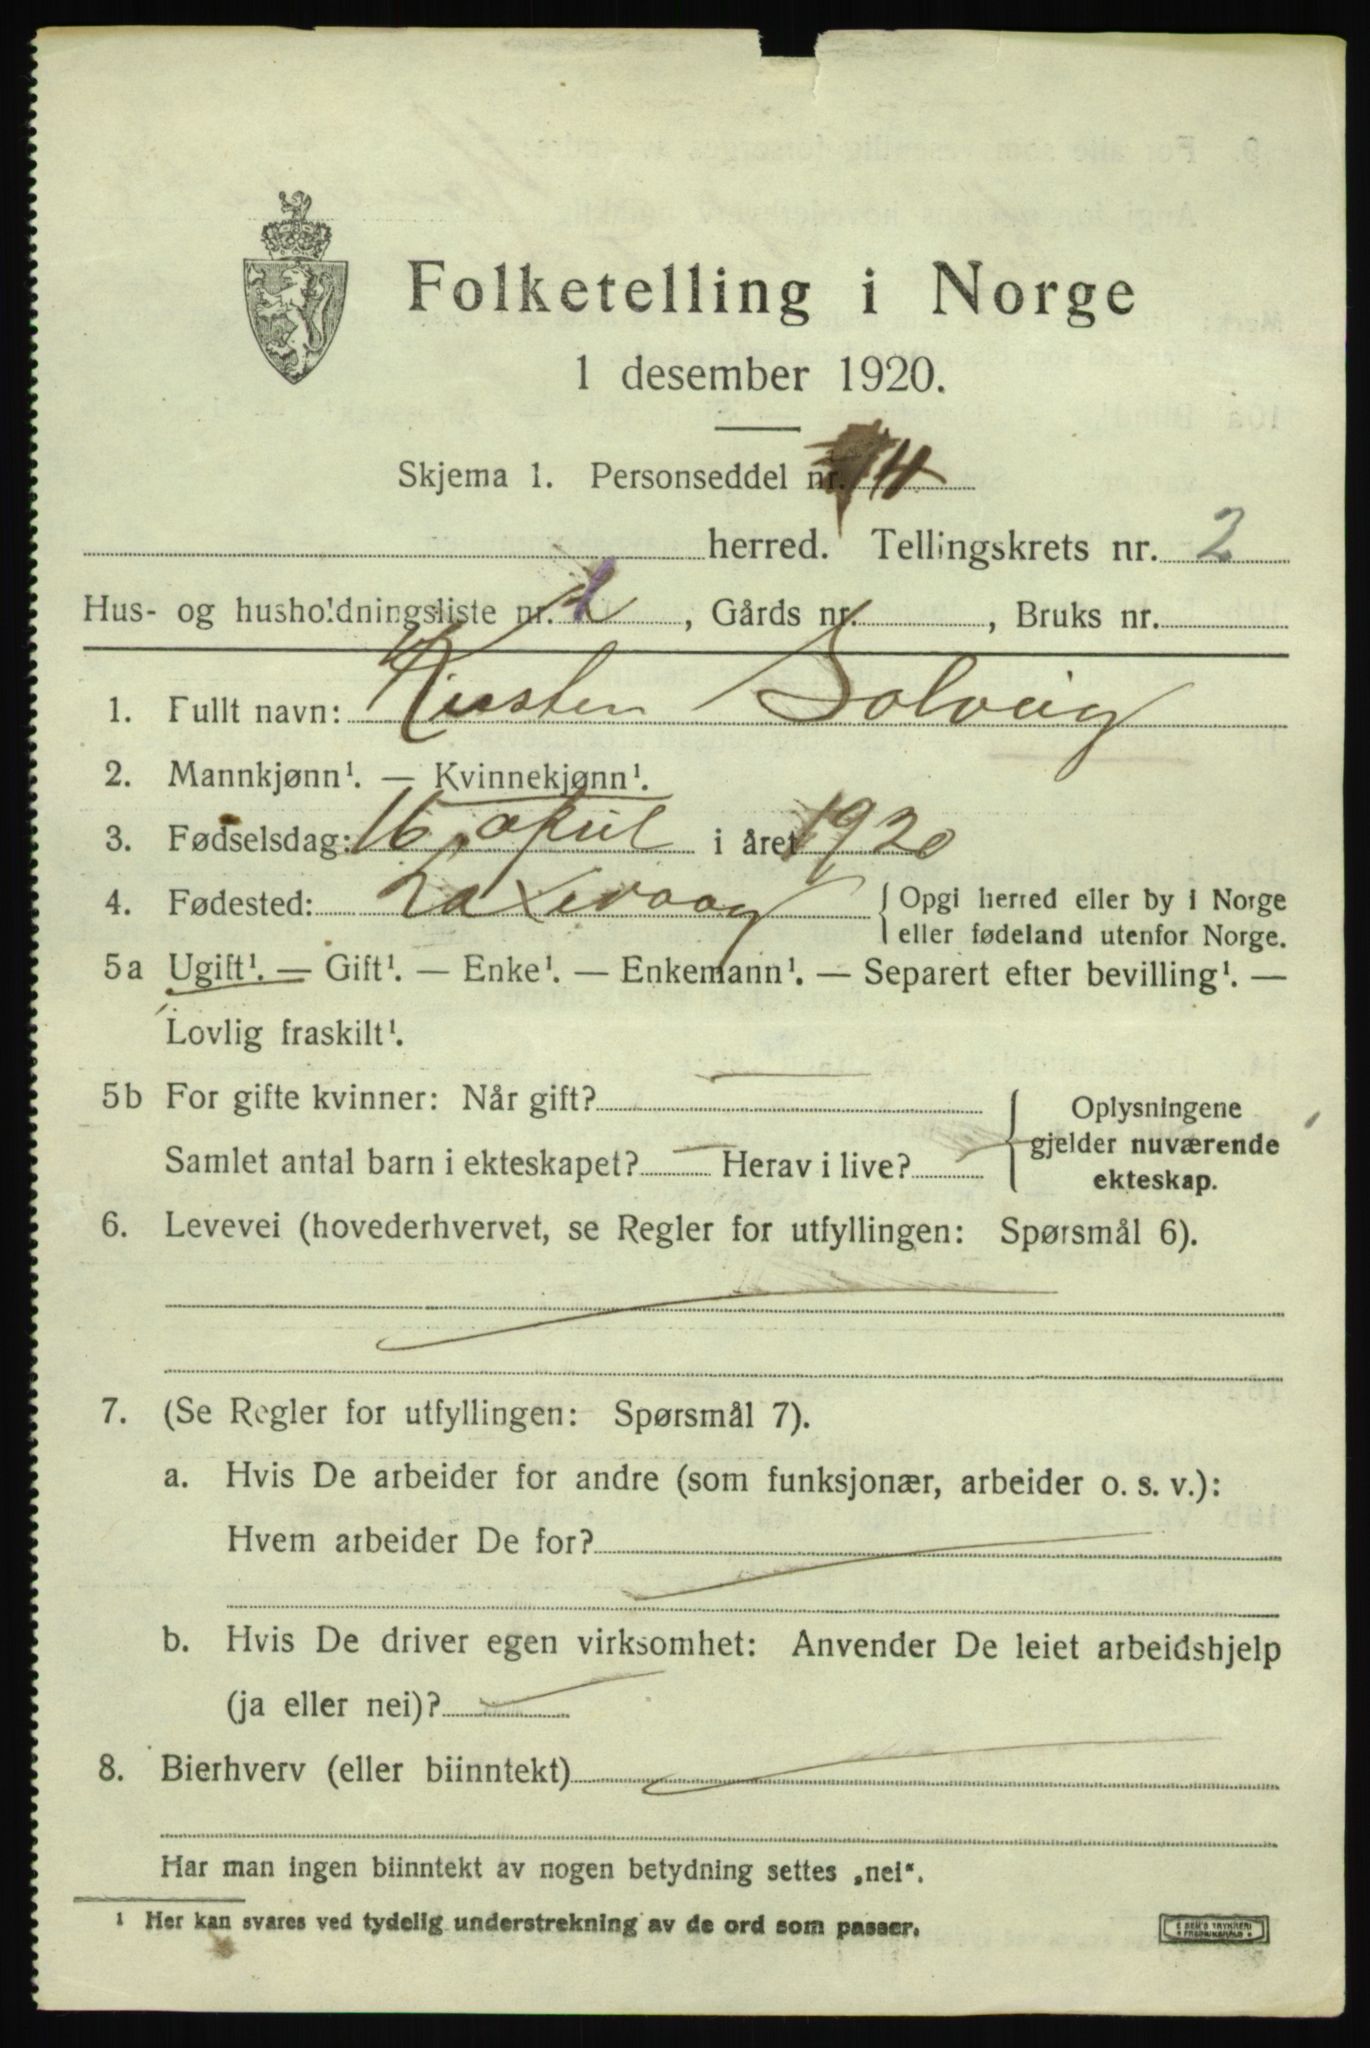 Folketelling i Norge
1 desember 1920.
Skjema 1. Personseddel nr. 14
herred. Tellingskrets nr. 2
Hus- og husholdningsliste nr. 1, Gårds nr. , Bruks nr.
1. Fullt navn: Kirsten Solveig
2. Mannkjønn¹. — Kvinnekjønn¹.
3. Fødselsdag: 16 april i året 1920
4. Fødested: Laxevaag {Opgi herred eller by i Norge
eller fødeland utenfor Norge.
5a Ugift¹. — Gift¹. — Enke¹. — Enkemann¹. — Separert efter bevilling¹. —
Lovlig fraskilt¹.
5b For gifte kvinner: Når gift? — {Oplysningene
Samlet antal barn i ekteskapet? — Herav i live? — gjelder nuværende
ekteskap.
6. Levevei (hovederhvervet, se Regler for utfyllingen: Spørsmål 6).
7. (Se Regler for utfyllingen: Spørsmål 7).
a. Hvis De arbeider for andre (som funksjonær, arbeider o. s. v.):
Hvem arbeider De for?
b. Hvis De driver egen virksomhet: Anvender De leiet arbeidshjelp
(ja eller nei)?
8. Bierhverv (eller biinntekt)
Har man ingen biinntekt av nogen betydning settes „nei“.
¹ Her kan svares ved tydelig understrekning av de ord som passer.